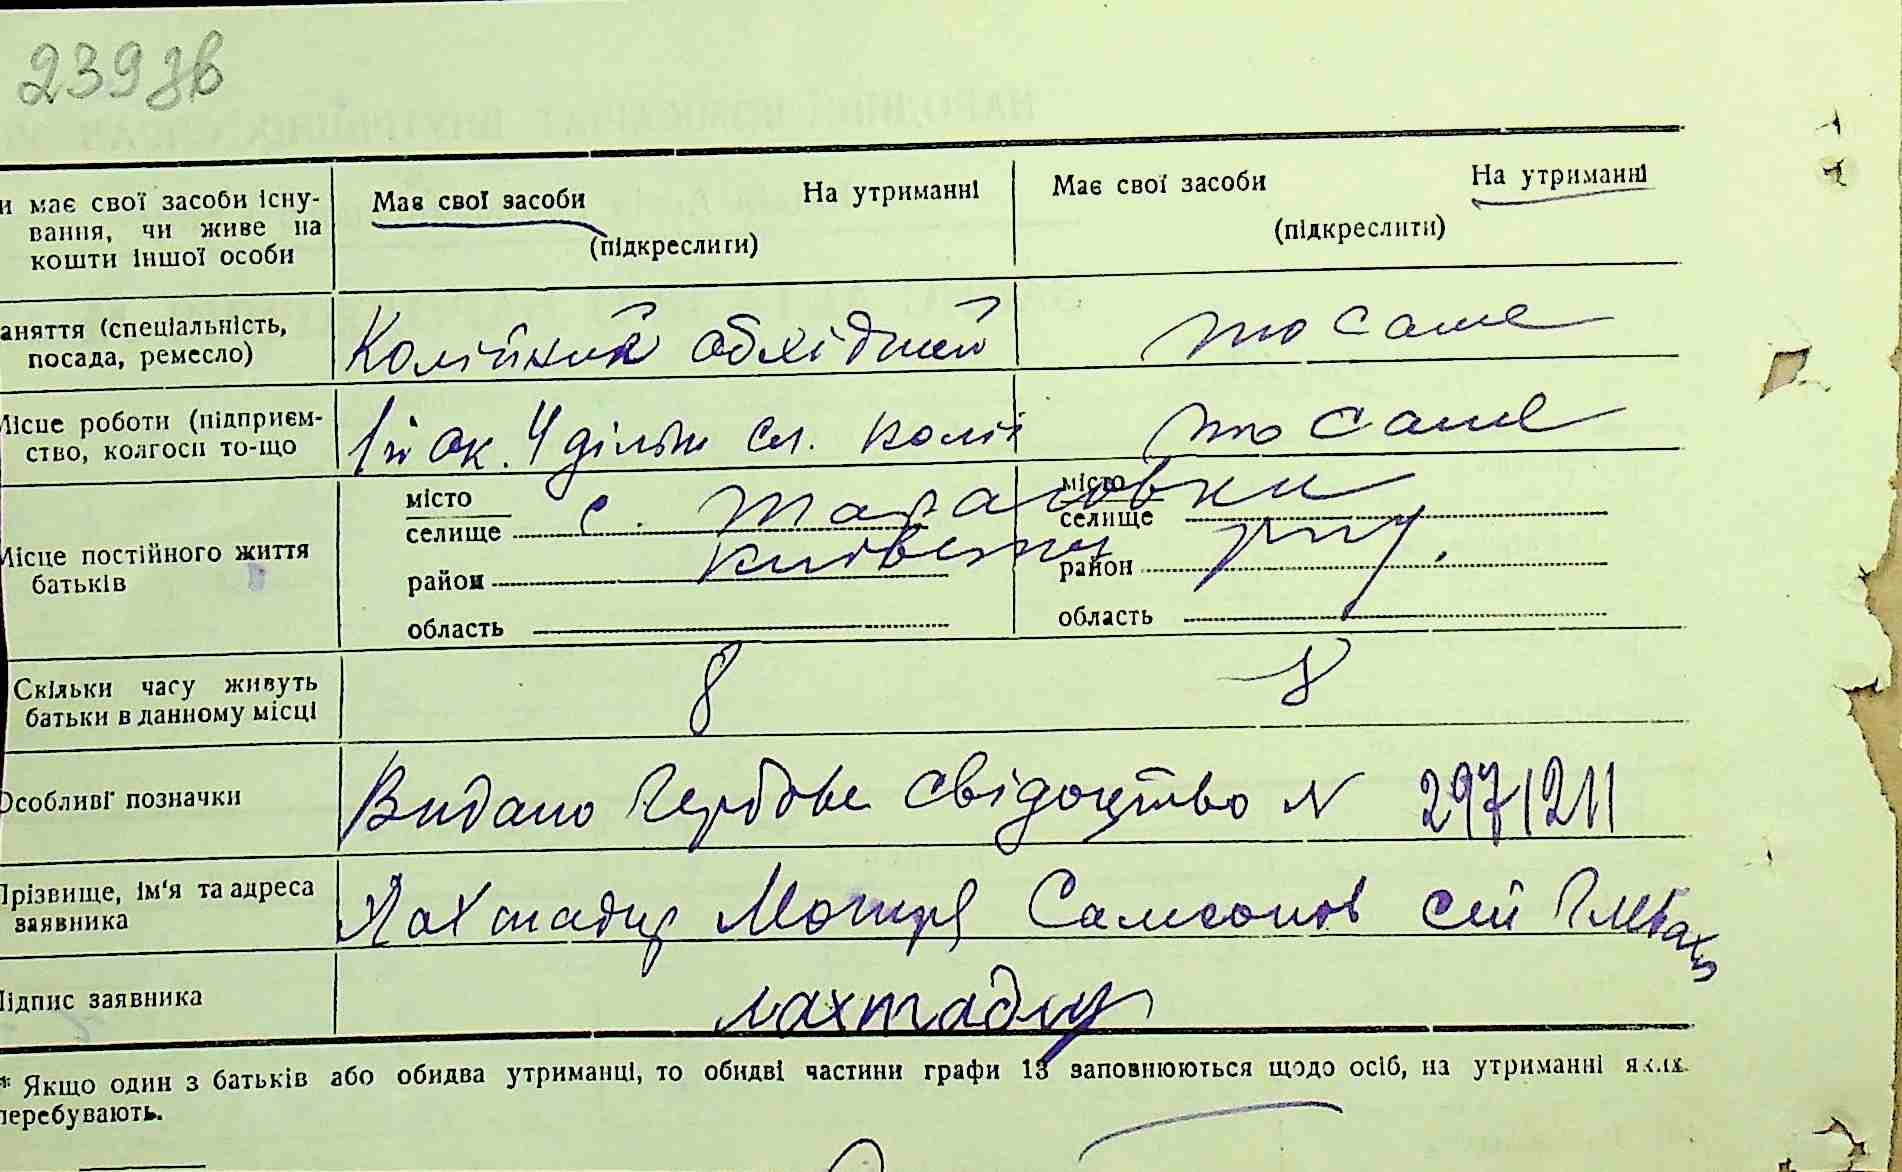 239 зв
и має свої засоби існу-
вання, чи живе на
кошти іншої особи
Має свої засоби На утриманні
(підкреслити)
Має свої засоби На утриманні
(підкреслити)
аняття (спеціальність,
посада, ремесло)
Колійний обхідний
то саме
Місце роботи (підприєм-
ство, колгосп то-що
1й ок. 4 дільн сл. колії
то саме
Місце постійного життя
батьків
місто
селище
район
область
с. Тарасовки
київський
місто
селище
район
область
Скільки часу живуть
батьки в данному місці
8
8
Особливі позначки
Видано Гербове свідоцтво N 297/211
Прізвище, ім'я та адреса
заявника
Лахтадир Мотря Самсонов
Підпис заявника
лахтадир
* Якщо один з батьків або обидва утриманці, то обидві частини графи 13 заповнюються щодо осіб, на утриманні яких
перебувають.